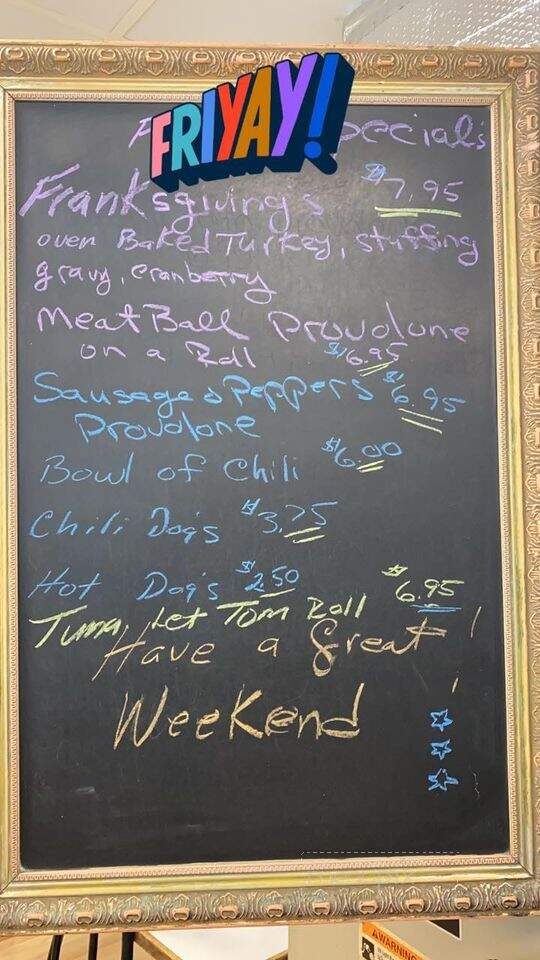 FRIYAY!
Specials
Franksgivings $7.95
oven Baked Turkey, stuffing
gravy, cranberry
MeatBall Provolone
on a Roll $6.95
Sausage & Peppers $6.95
Provolone
Bowl of Chili $6.00
Chili Dog's $3.75
Hot Dog's $2.50
Tuna, Let Tom Roll $6.95
Have a Great !
Weekend !
AWARNING